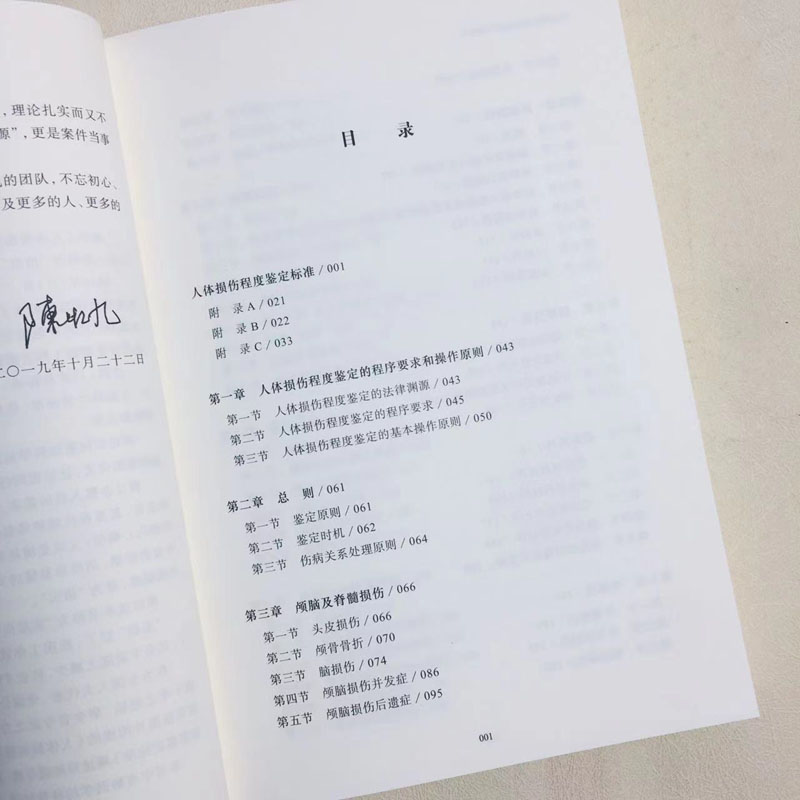 ，理论扎实而又不
源”，更是案件当事
的团队，不忘初心、
及更多的人、更多的
二〇一九年十月二十二日
目 录
人体损伤程度鉴定标准 / 001
附 录 A / 021
附 录 B / 022
附 录 C / 033
第一章 人体损伤程度鉴定的程序要求和操作原则 / 043
第一节 人体损伤程度鉴定的法律渊源 / 043
第二节 人体损伤程度鉴定的程序要求 / 045
第三节 人体损伤程度鉴定的基本操作原则 / 050
第二章 总 则 / 061
第一节 鉴定原则 / 061
第二节 鉴定时机 / 062
第三节 伤病关系处理原则 / 064
第三章 颅脑及脊髓损伤 / 066
第一节 头皮损伤 / 066
第二节 颅骨骨折 / 070
第三节 脑损伤 / 074
第四节 颅脑损伤并发症 / 086
第五节 颅脑损伤后遗症 / 095
001